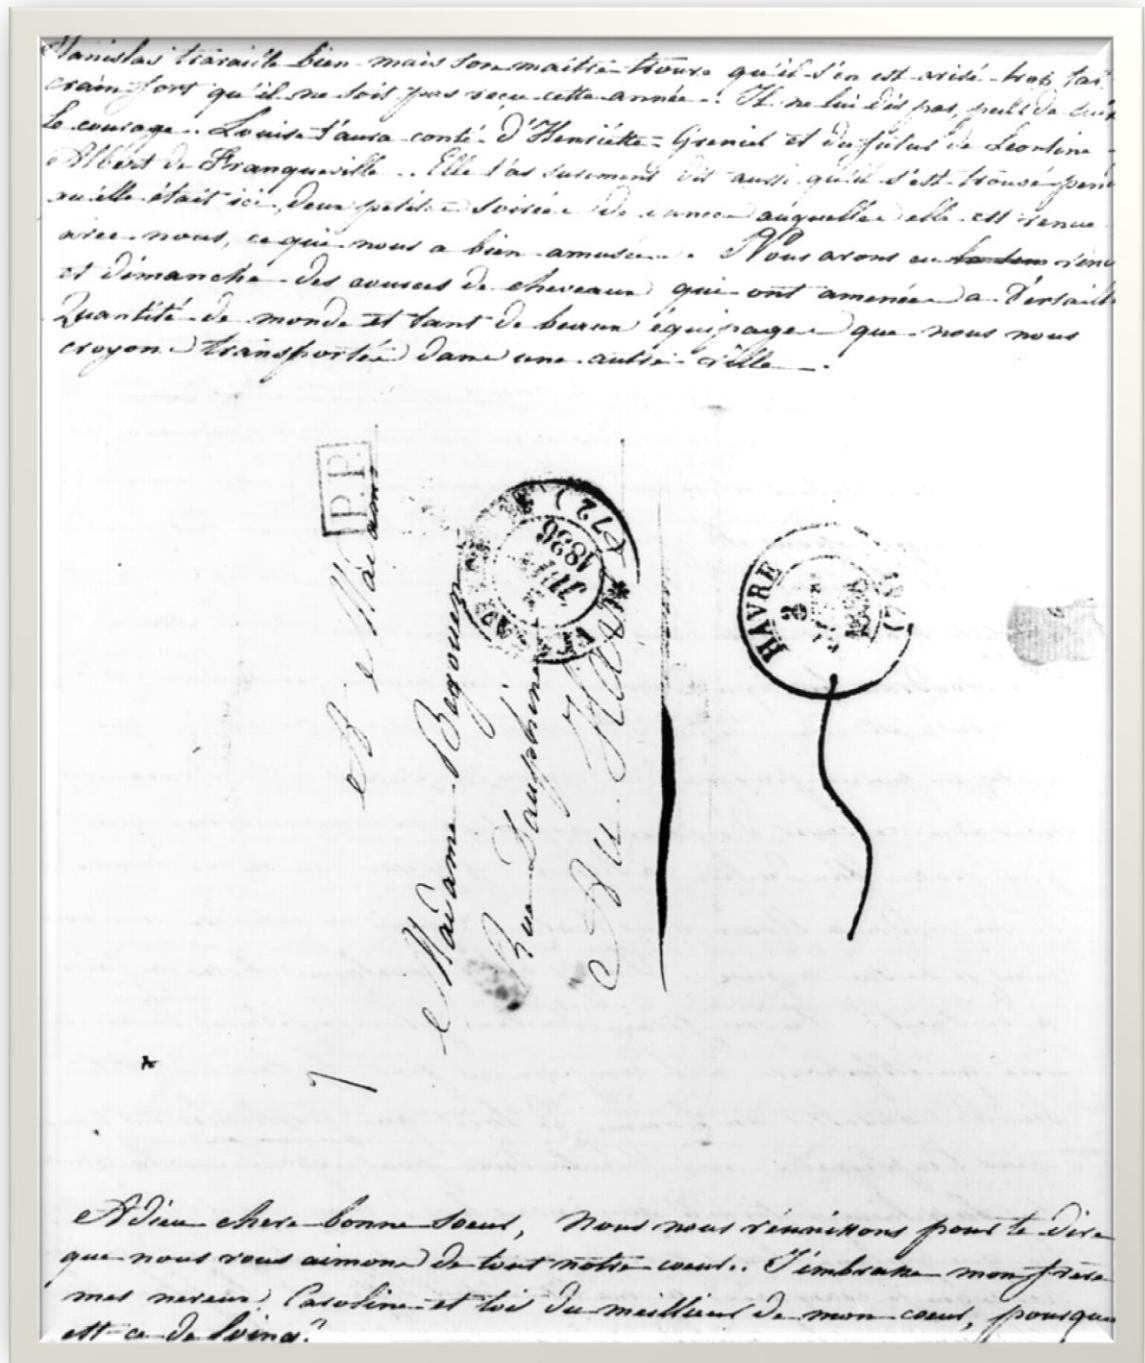 Stanislas travaille bien mais son maitre trouve qu'il s'en est avisé trop tar
crain fort qu'il ne soit pas reçu cette année. Il ne lui dit pas, peur de lui
le courage. Louise t'aura conté d'Henriette Greniel et du futur de Leontine
Albert de Franqueville. Elle t'as surement dit aussi qu'il s'est trouvé pen
qu'elle était ici, deux petites soirées de danse auquelles elle est venue
avec nous, ce qui nous a bien amusées. Nous avons eu ven
et dimanche des courses de cheveaux qui ont amenées a Versaill
Quantité de monde et tant de beaux équipages que nous nous
croyons transportées dans une autre ville.
P.P.
B Madame
Madame Begouen
Rue Dauphine
Au Havre
(72)
1836
HAVRE
3
Adieu chere bonne soeur, Nous nous réunissons pour te dire
que nous vous aimons de tout notre coeur. J'embrasse mon frère
mes neveux, Caroline et toi du meilleur de mon coeur, pourquoi
est-ce de loin?